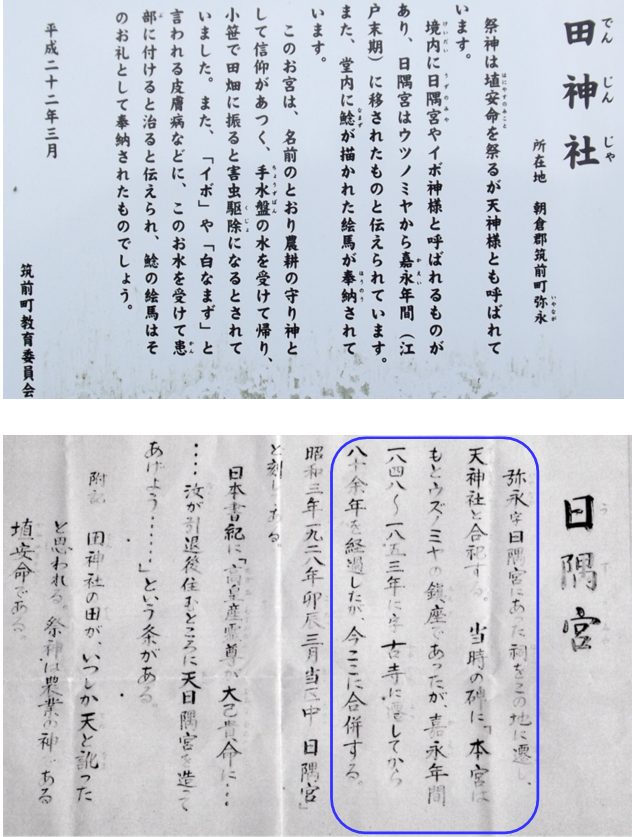 でん じん じゃ
田神社
所在地 朝倉郡筑前町弥永
いやなが
祭神は埴安命を祭るが天神様とも呼ばれて
はにやすのみこと
います。
境内に日隅宮やイボ神様と呼ばれるものが
けいだい うずのみや
あり、日隅宮はウツノミヤから嘉永年間（江
かえい
戸末期）に移されたものと伝えられています。
また、堂内に鯰が描かれた絵馬が奉納されて
なまず ほうのう
います。
このお宮は、名前のとおり農耕の守り神と
して信仰があつく、手水盤の水を受けて帰り、
ちょうずばん
小笹で田畑に振ると害虫駆除になるとされて
くじょ
いました。また、「イボ」や「白なまず」と
言われる皮膚病などに、このお水を受けて患
かん
部に付けると治ると伝えられ、鯰の絵馬はそ
ぶ
のお礼として奉納されたものでしょう。
平成二十二年三月
筑前町教育委員会
日隅宮
弥永字日隅宮にあった祠をこの地に遷し、
天神社と合祀する。当時の碑に「本宮は
もとウズノミヤの鎮座であったが、嘉永年間
一八四八〜一八五三年に字古寺に遷してから
八十余年を経過したが、今ここに合併する。
昭和三年一九二八年卯辰三月当区中 日隅宮」
と刻しある。
日本書紀に「高皇産霊尊が大己貴命に・・・
・・・・汝が引退後住むところに天日隅宮を造て
あげよう・・・・・・」という条がある。
附記 田神社の田が、いつしか天と訛った
と思われる。祭神は農業の神である
埴安命である。